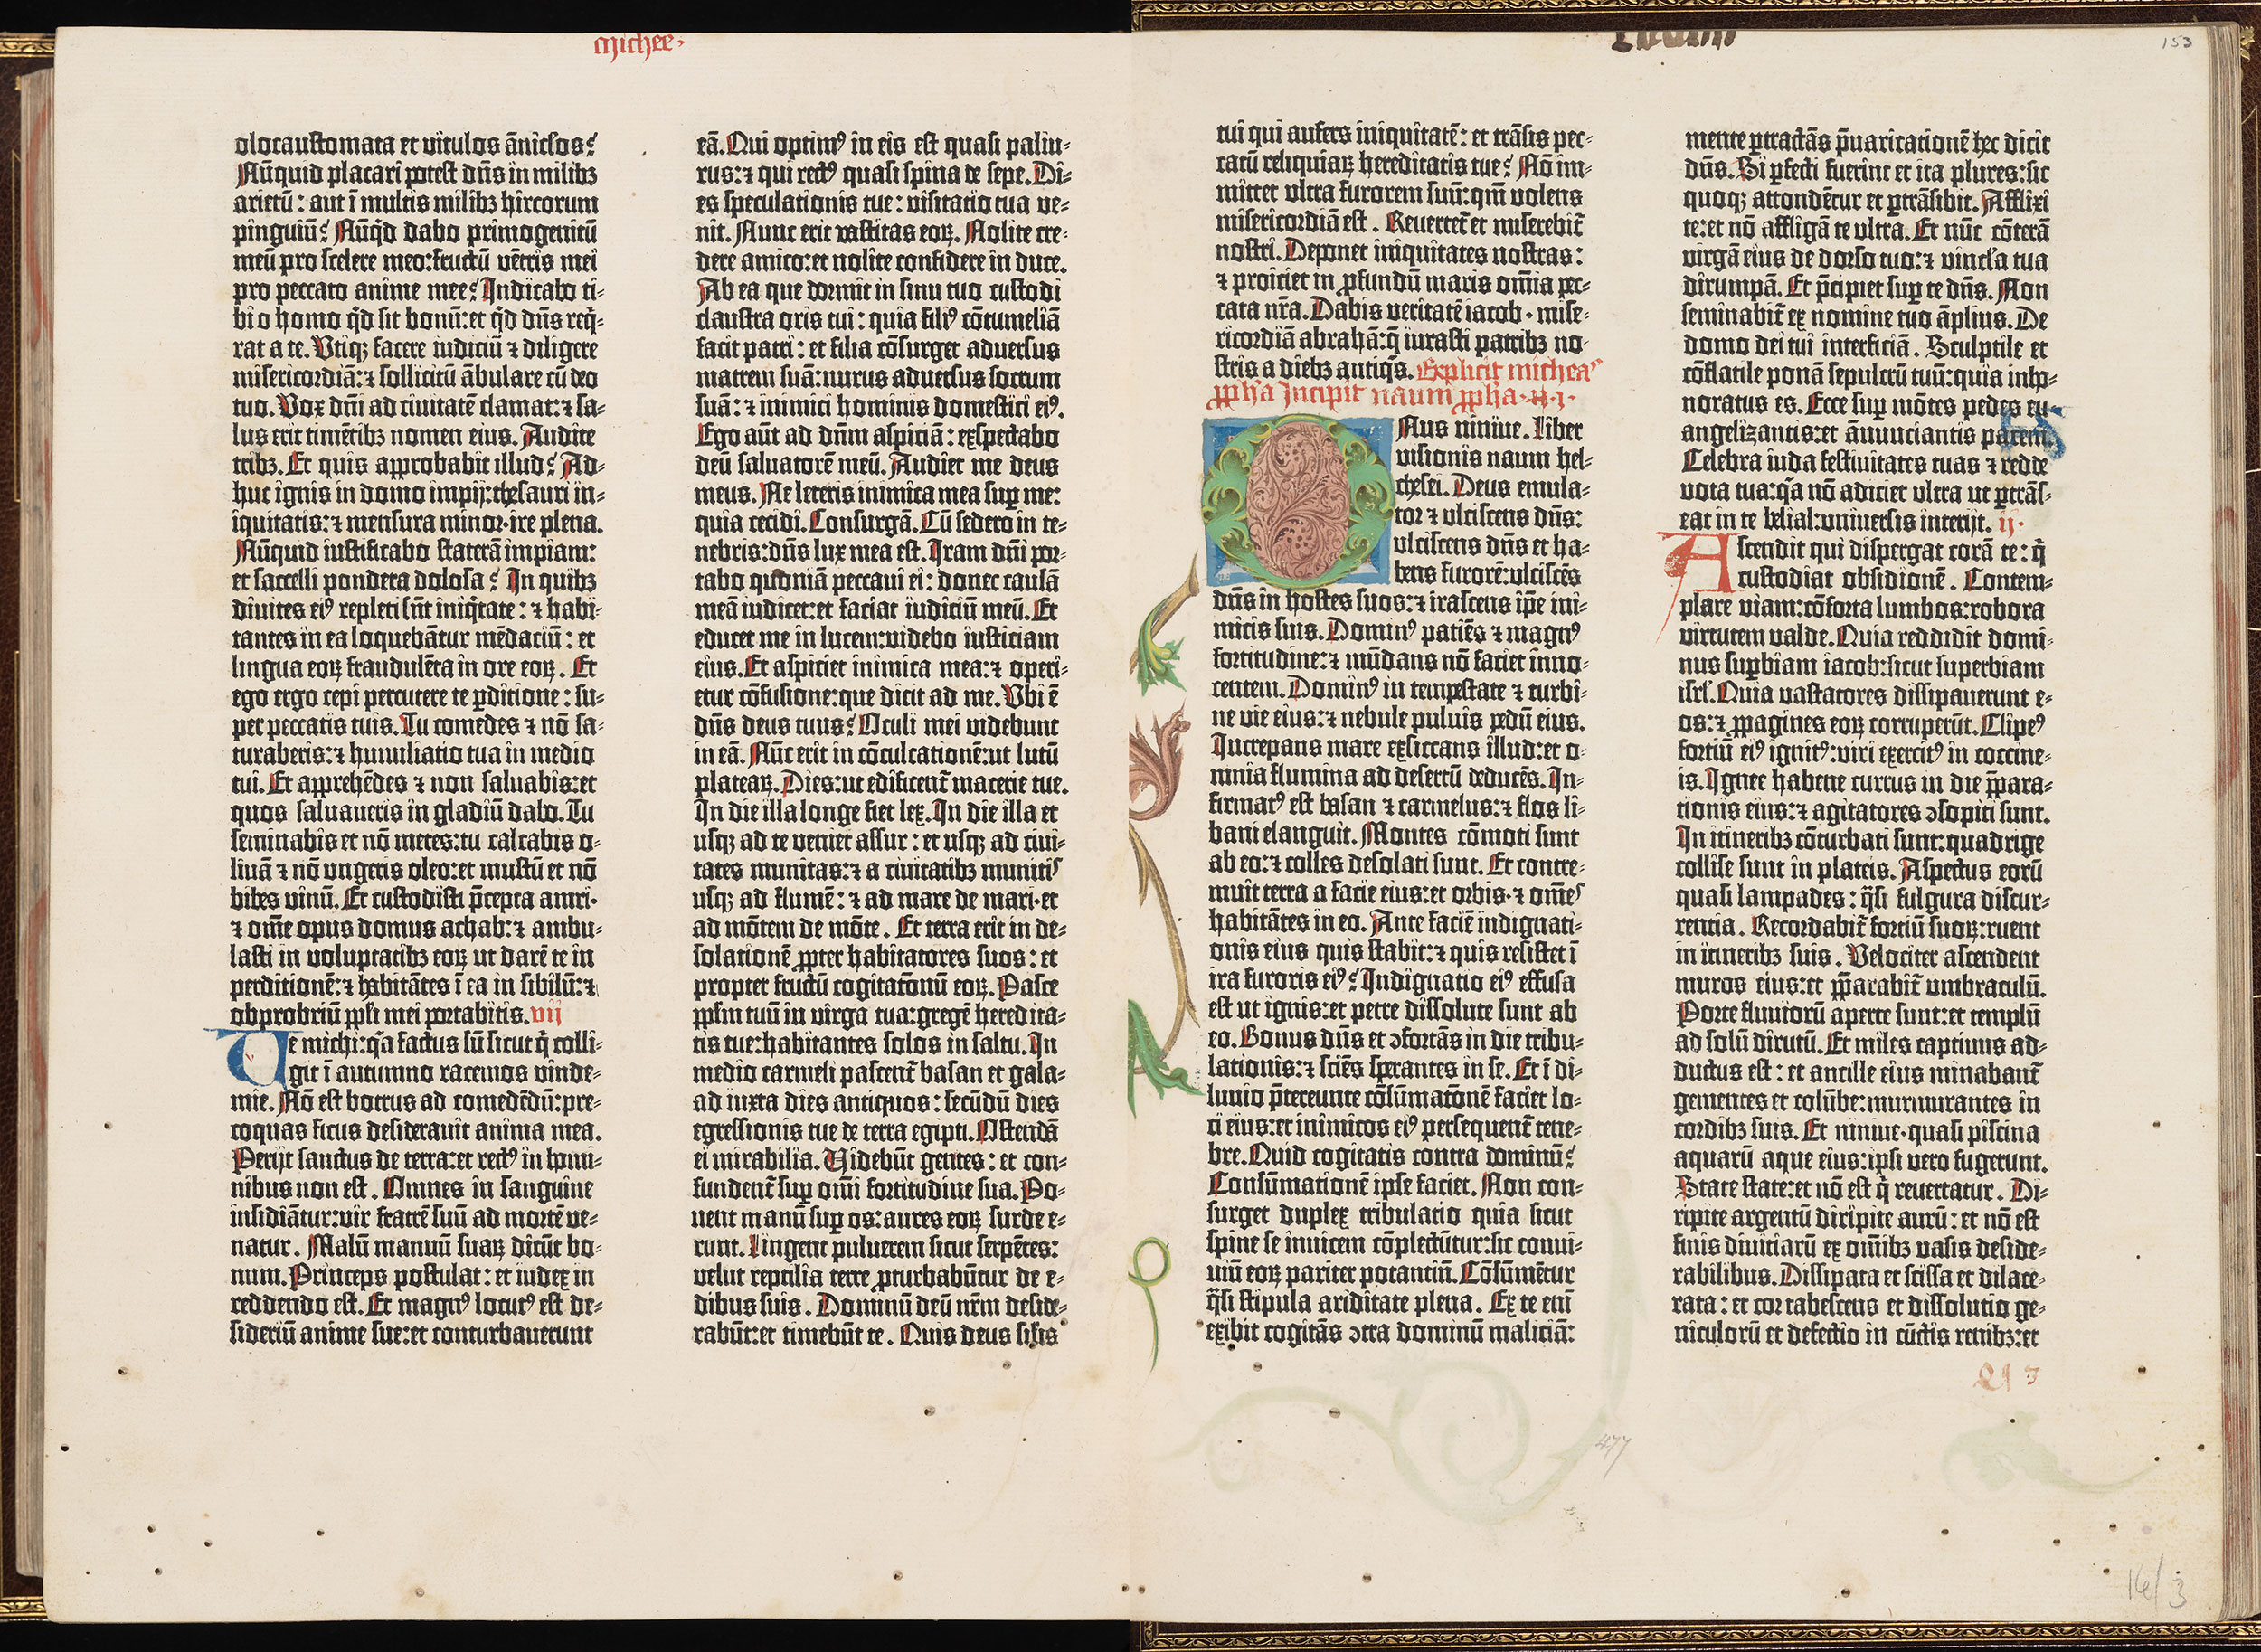 Michee
olocaustomata et vitulos ãniclos?
Nũquid placari potest dñs in milibꝫ
arietũ: aut ĩ multis milibꝫ hircorum
pinguiũ? Nũq̃d dabo primogenitũ
meũ pro scelere meo: fructũ vẽtris mei
pro peccato anime mee? Indicabo ti-
bi o homo q̃d sit bonũ: et q̃d dñs req̃-
rat a te. Vtiqꝫ facere iudiciũ ⁊ diligere
misericordiã: ⁊ sollicitũ ãbulare cũ deo
tuo. Vox dñi ad ciuitatẽ clamat: ⁊ sa-
lus erit timẽtibꝫ nomen eius. Audite
tribꝫ. Et quis approbabit illud? Ad-
huc ignis in domo impij: thesauri in-
iquitatis: ⁊ mensura minor· ire plena.
Nũquid iustificabo staterã impiam:
et saccelli pondera dolosa? In quibꝫ
diuites eiꝰ repleti sũt iniq̃tate: ⁊ habi-
tantes in ea loquebãtur mẽdaciũ: et
lingua eoꝝ fraudulẽta in ore eoꝝ. Et
ego ergo cepi percutere te ꝑditione: su-
per peccatis tuis. Tu comedes ⁊ nõ sa-
turaberis: ⁊ humiliatio tua in medio
tui. Et apprehẽdes ⁊ non saluabis: et
quos saluaueris in gladiũ dabo. Tu
seminabis et nõ metes: tu calcabis o-
liuã ⁊ nõ vngeris oleo: et mustũ et nõ
bibes vinũ. Et custodisti p̃cepta amri·
⁊ om̃e opus domus achab: ⁊ ambu-
lasti in voluptatibꝫ eoꝝ ut darẽ te in
perditionẽ: ⁊ habitãtes ĩ ea in sibilũ: ⁊
obprobriũ pp̃li mei portabitis. vij
Ue michi: q̃a factus sũ sicut q̃ colli-
git ĩ autumno racemos vinde-
mie. Nõ est botrus ad comedẽdũ: pre-
coquas ficus desiderauit anima mea.
Perijt sanctus de terra: et rectꝰ in homi-
nibus non est. Omnes in sanguine
insidiãtur: vir fratrẽ suũ ad mortẽ ve-
natur. Malũ manuũ suaꝝ dicũt bo-
num. Princeps postulat: et iudex in
reddendo est. Et magnꝰ locutꝰ est de-
sideriũ anime sue: et conturbauerunt
eã. Qui optimꝰ in eis est quasi paliu-
rus: ⁊ qui rectꝰ quasi spina de sepe. Di-
es speculationis tue: visitatio tua ve-
nit. Nunc erit vastitas eoꝝ. Nolite cre-
dere amico: et nolite confidere in duce.
Ab ea que dormit in sinu tuo custodi
claustra oris tui: quia filiꝰ cõtumeliã
facit patri: et filia cõsurget aduersus
matrem suã: nurus aduersus socrum
suã: ⁊ inimici hominis domestici eiꝰ.
Ego aũt ad dñm aspiciã: exspectabo
deũ saluatorẽ meũ. Audiet me deus
meus. Ne leteris inimica mea suꝑ me:
quia cecidi. Consurgã. Cũ sedero in te-
nebris: dñs lux mea est. Iram dñi por-
tabo quoniã peccaui ei: donec causã
meã iudicet: et faciat iudiciũ meũ. Et
educet me in lucem: videbo iusticiam
eius. Et aspiciet inimica mea: ⁊ operi-
etur cõfusione: que dicit ad me. Vbi ẽ
dñs deus tuus? Oculi mei videbunt
in eã. Nũc erit in cõculcationẽ: ut lutũ
plateaꝝ. Dies: ut edificent̃ macerie tue.
In die illa longe fiet lex. In die illa et
usqꝫ ad te veniet assur: et usqꝫ ad ciui-
tates munitas: ⁊ a ciuitatibꝫ munitis
usqꝫ ad flumẽ: ⁊ ad mare de mari· et
ad mõtem de mõte. Et terra erit in de-
solationẽ ꝓpter habitatores suos: et
propter fructũ cogitatõnũ eoꝝ. Pasce
pp̃lm tuũ in virga tua: gregẽ heredita-
tis tue: habitantes solos in saltu. In
medio carmeli pascent̃ basan et gala-
ad iuxta dies antiquos: secũdũ dies
egressionis tue de terra egipti. Ostendã
ei mirabilia. Videbũt gentes: et con-
fundent̃ suꝑ om̃i fortitudine sua. Po-
nent manũ suꝑ os: aures eoꝝ surde e-
runt. Lingent puluerem sicut serpẽtes:
velut reptilia terre ꝓturbabũtur de e-
dibus suis. Dominũ deũ nr̃m deside-
rabũt: et timebũt te. Quis deus sil̃is
Naum
153
tui qui aufers iniquitatẽ: et trãsis pec-
catũ reliquiaꝝ hereditatis tue? Nõ im-
mittet vltra furorem suũ: qm̃ volens
misericordiã est. Reuertet̃ et miserebit̃
nostri. Deponet iniquitates nostras:
⁊ proiciet in ꝓfundũ maris om̃ia pec-
cata nr̃a. Dabis veritatẽ iacob· mise-
ricordiã abrahã: q̃ iurasti patribꝫ no-
stris a diebꝫ antiq̃s. Explicit micheas
ꝓpħa Incipit naum ꝓpħa· c̃· i·
Onus niniue. Liber
visionis naum hel-
chesei. Deus emula-
tor ⁊ vlciscens dñs:
vlciscens dñs et ha-
bens furorẽ: vlciscẽs
dñs in hostes suos: ⁊ irascens ip̃e ini-
micis suis. Dominꝰ patiẽs ⁊ magnꝰ
fortitudine: ⁊ mũdans nõ faciet inno-
centem. Dominꝰ in tempestate ⁊ turbi-
ne vie eius: ⁊ nebule puluis pedũ eius.
Increpans mare exsiccans illud: et o-
mnia flumina ad desertũ deducẽs. In-
firmatꝰ est basan ⁊ carmelus: ⁊ flos li-
bani elanguit. Montes cõmoti sunt
ab eo: ⁊ colles desolati sunt. Et contre-
muit terra a facie eius: et orbis· ⁊ om̃es
habitãtes in eo. Ante faciẽ indignati-
onis eius quis stabit: ⁊ quis resistet ĩ
ira furoris eiꝰ? Indignatio eiꝰ effusa
est ut ignis: et petre dissolute sunt ab
eo. Bonus dñs et ↄfortãs in die tribu-
lationis: ⁊ sciẽs sperantes in se. Et ĩ di-
luuio p̃tereunte cõsũmatõnẽ faciet lo-
ci eius: et inimicos eiꝰ persequent̃ tene-
bre. Quid cogitatis contra dominũ?
Consũmationẽ ipse faciet. Non con-
surget duplex tribulatio quia sicut
spine se inuicem cõplectũtur: sic conui-
uiũ eoꝝ pariter potantiũ. Cõsũmẽtur
q̃si stipula ariditate plena. Ex te eni
exibit cogitãs ↄtra dominũ maliciã:
mente ꝑtractãs p̃uaricationẽ hec dicit
dñs. Si ꝑfecti fuerint et ita plures: sic
quoqꝫ attondẽtur et ꝑtrãsibit. Afflixi
te: et nõ affligã te vltra. Et nũc cõterã
virgã eius de dorso tuo: ⁊ vincl̃a tua
dirumpã. Et p̃cipiet suꝑ te dñs. Non
seminabit̃ ex nomine tuo ãplius. De
domo dei tui interficiã. Sculptile et
cõflatile ponã sepulcrũ tuũ: quia inho-
noratus es. Ecce suꝑ mõtes pedes eu-
angelizantis: et ãnunciantis pacem.
Celebra iuda festiuitates tuas ⁊ redde
vota tua: q̃a nõ adiciet vltra ut ꝑtrãs-
eat in te belial: vniuersis interijt. ij·
Ascendit qui dispergat corã te: q̃
custodiat obsidionẽ. Contem-
plare viam: cõforta lumbos: robora
virtutem valde. Quia reddidit domi-
nus suꝑbiam iacob: sicut superbiam
isrl̃. Quia vastatores dissipauerunt e-
os: ⁊ ꝓpagines eoꝝ corruperũt. Clipeꝰ
fortiũ eiꝰ ignitꝰ: viri exercitꝰ in coccine-
is. Ignee habene currus in die p̃para-
tionis eius: ⁊ agitatores ↄsopiti sunt.
In itineribꝫ cõturbati sunt: quadrige
collise sunt in plateis. Aspectus eorũ
quasi lampades: q̃si fulgura discur-
rentia. Recordabit̃ fortiũ suoꝝ: ruent
in itineribꝫ suis. Velociter ascendent
muros eius: et p̃parabit̃ vmbraculũ.
Porte fluuiorũ aperte sunt: et templũ
ad solũ dirutũ. Et miles captiuus ad-
ductus est: et ancille eius minabant̃
gementes et colũbe: murmurantes in
cordibꝫ suis. Et niniue· quasi piscina
aquarũ aque eius: ipsi vero fugerunt.
State state: et nõ est q̃ reuertatur. Di-
ripite argentũ diripite aurũ: et nõ est
finis diuiciarũ ex om̃ibꝫ vasis deside-
rabilibus. Dissipata et scissa et dilace-
rata: et cor tabescens et dissolutio ge-
niculorũ et defectio in cũctis renibꝫ: et
477